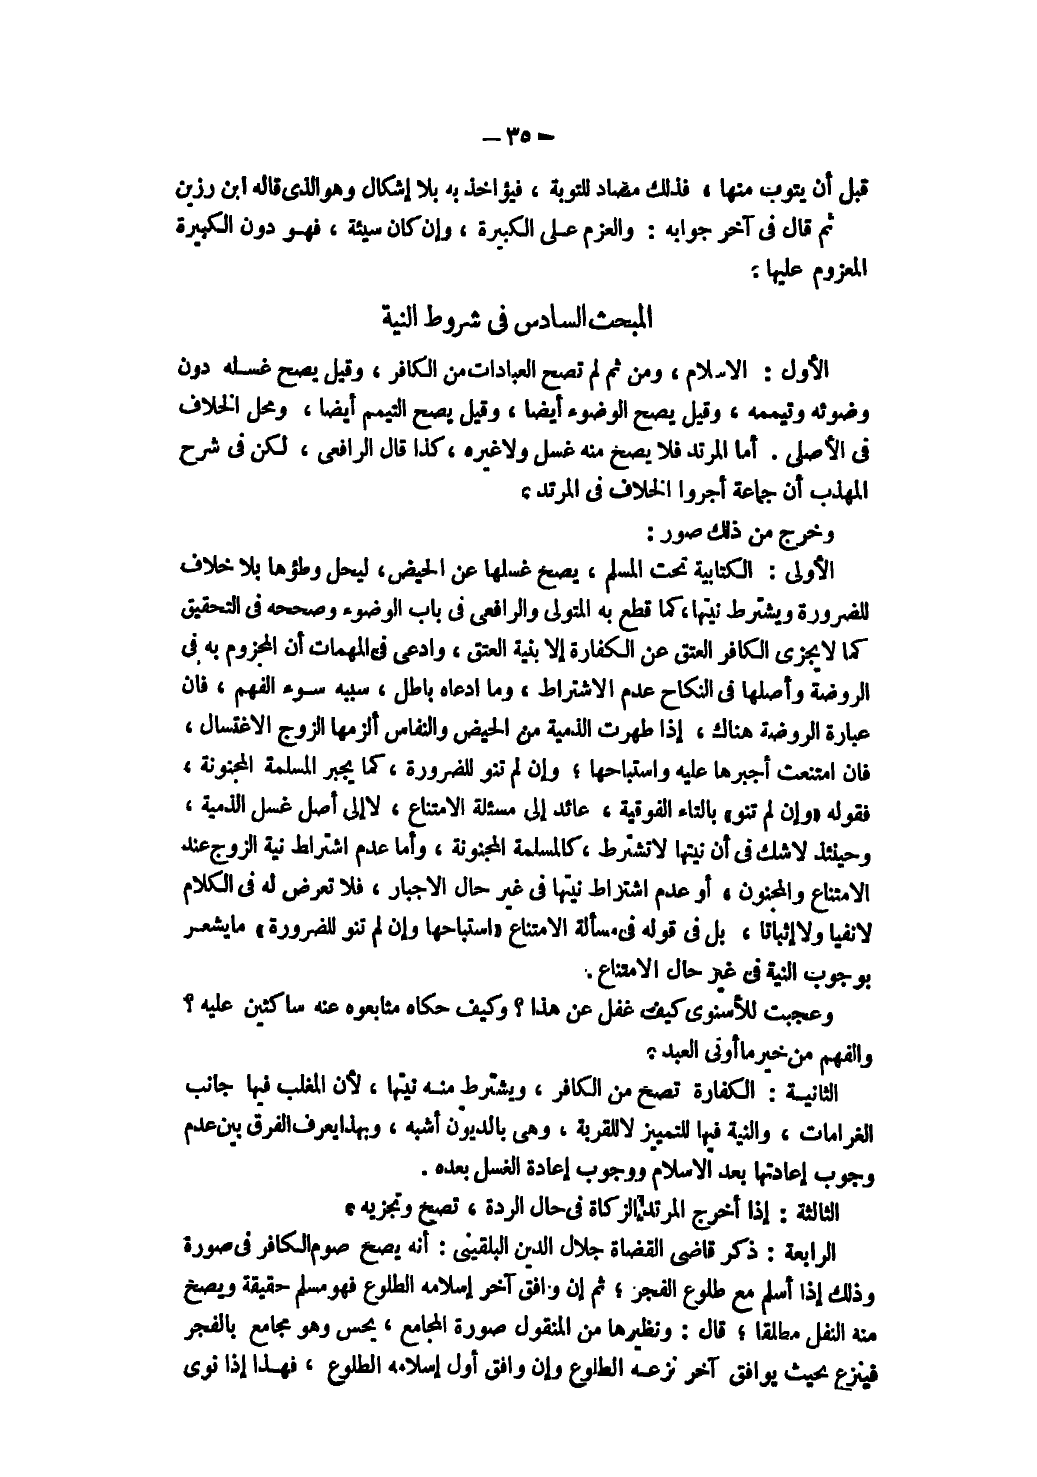 — ٣٥ —
قبل أن يتوب منها ، فذلك مضاد للتوبة ، فيؤاخذ به بلا إشكال وهو الذى قاله ابن رزين
ثم قال فى آخر جوابه : والعزم على الكبيرة ، وإن كان سيئة ، فهو دون الكبيرة
المعزوم عليها ؛
المبحث السادس فى شروط النية
الأول : الاسلام ، ومن ثم لم تصح العبادات من الكافر ، وقيل يصح غسله دون
وضوئه وتيممه ، وقيل يصح الوضوء أيضا ، وقيل يصح التيمم أيضا ، ومحل الخلاف
فى الأصلى . أما المرتد فلا يصح منه غسل ولا غيره ، كذا قال الرافعى ، لكن فى شرح
المهذب أن جماعة أجروا الخلاف فى المرتد ؛
وخرج من ذلك صور :
الأولى : الكتابية تحت المسلم ، يصح غسلها عن الحيض ، ليحل وطؤها بلا خلاف
للضرورة ويشترط نيتها ، كما قطع به المتولى والرافعى فى باب الوضوء وصححه فى التحقيق
كما لا يجزى الكافر العتق عن الكفارة إلا بنية العتق ، وادعى فى المهمات أن المجزوم به فى
الروضة وأصلها فى النكاح عدم الاشتراط ، وما ادعاه باطل ، سببه سوء الفهم ، فان
عبارة الروضة هناك ، إذا طهرت الذمية من الحيض والنفاس ألزمها الزوج الاغتسال ،
فان امتنعت أجبرها عليه واستباحها ؛ وإن لم تنو للضرورة ، كما يجبر المسلمة المجنونة ،
فقوله «وإن لم تنو» بالتاء الفوقية ، عائد إلى مسئلة الامتناع ، لا إلى أصل غسل الذمية ،
وحينئذ لاشك فى أن نيتها لا تشترط ، كالمسلمة المجنونة ، وأما عدم اشتراط نية الزوج عند
الامتناع والمجنون ، أو عدم اشتراط نيتها فى غير حال الاجبار ، فلا تعرض له فى الكلام
لا نفيا ولا إثباتا ، بل فى قوله فى مسألة الامتناع «استباحها وإن لم تنو للضرورة» ما يشعر
بوجوب النية فى غير حال الامتناع .
وعجبت للأسنوى كيف غفل عن هذا ؟ وكيف حكاه متابعوه عنه ساكتين عليه ؟
والفهم من خير ما أوتى العبد ؛
الثانية : الكفارة تصح من الكافر ، ويشترط منه نيتها ، لأن المغلب فيها جانب
الغرامات ، والنية فيها للتمييز لا للقربة ، وهى بالديون أشبه ، وبهذا يعرف الفرق بين عدم
وجوب إعادتها بعد الاسلام ووجوب إعادة الغسل بعده .
الثالثة : إذا أخرج المرتد الزكاة فى حال الردة ، تصح وتجزيه ؛
الرابعة : ذكر قاضى القضاة جلال الدين البلقينى : أنه يصح صوم الكافر فى صورة
وذلك إذا أسلم مع طلوع الفجر ؛ ثم إن وافق آخر إسلامه الطلوع فهو مسلم حقيقة ويصح
منه النفل مطلقا ؛ قال : ونظيرها من المنقول صورة المجامع ، يحس وهو مجامع بالفجر
فينزع بحيث يوافق آخر نزعه الطلوع وإن وافق أول إسلامه الطلوع ، فهذا إذا نوى